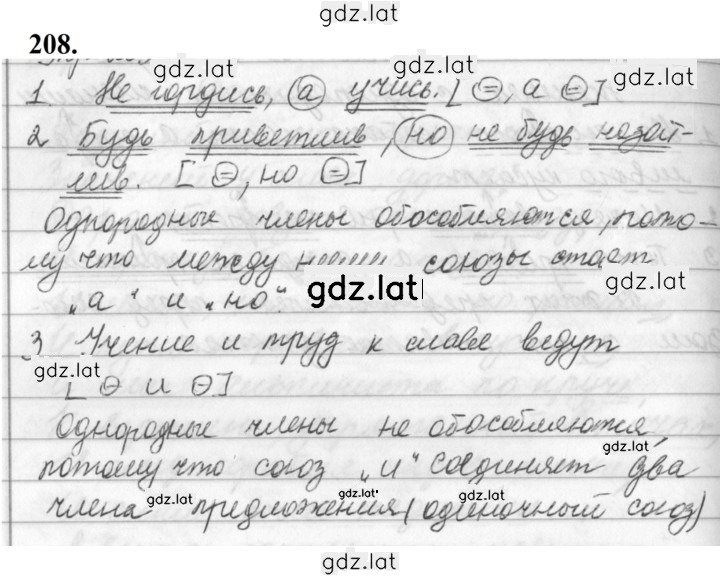 gdz.lat
208.
gdz.lat gdz.lat
1 Не гордись, а учись. [ =, а = ]
gdz.lat
2 Будь приветлив, но не будь назой-
лив. [ =, но = ]
Однородные члены обособляются, пото-
му что между союзы стоят
„а“ и „но“. gdz.lat
3 Учение и труд к славе ведут
gdz.lat
[ – и – ]
Однородные члены не обособляются,
gdz.lat
потому что союз „и“ соединяет два
gdz.lat gdz.lat gdz.lat
члена предложения (одиночный союз)
gdz.lat